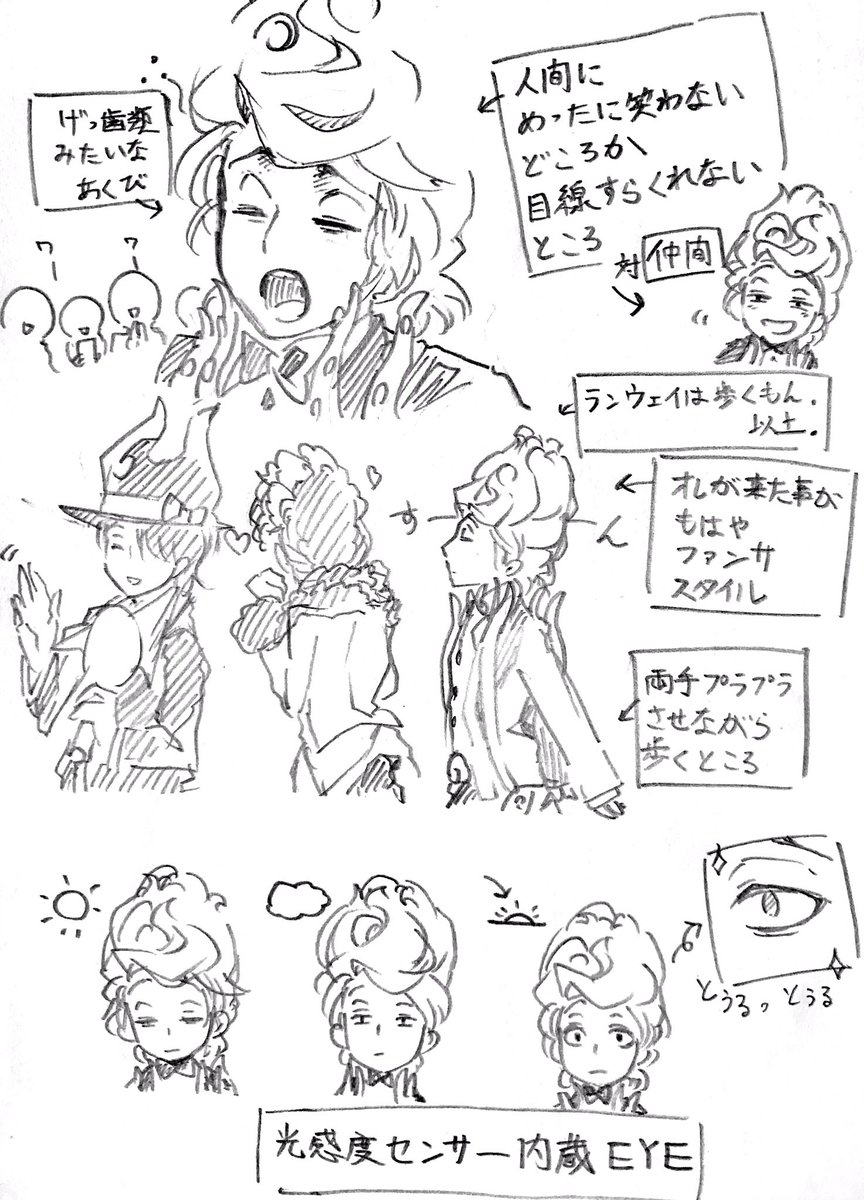 げっ歯類
みたいな
あくび
人間に
めったに笑わない
どころか
目線すらくれない
ところ
対 仲間
ワー
ワー
ランウェイは歩くもん。
以上。
オレが来た事が
もはや
ファンサ
スタイル
すーん
両手プラプラ
させながら
歩くところ
とぅるっとぅる
光感度センサー内蔵EYE